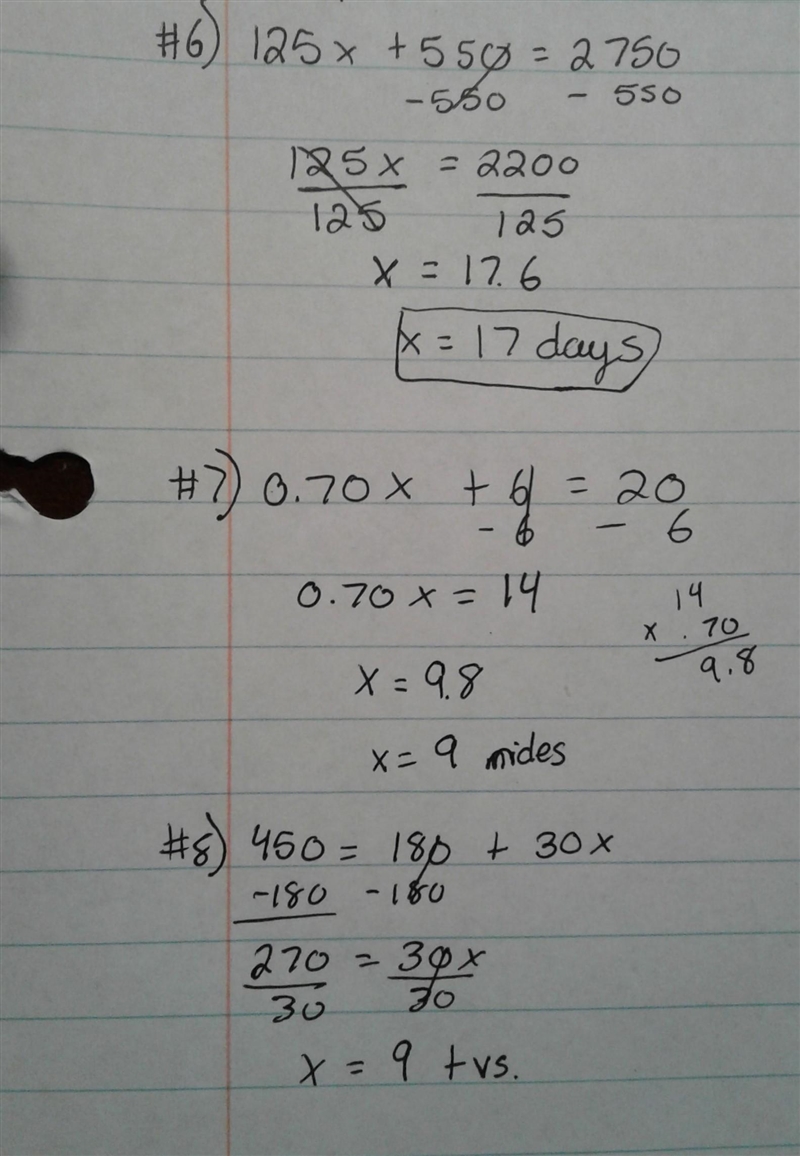 #6) 125x + 550 = 2750
-550 - 550
125x = 2200
125 125
x = 17.6
x = 17 days
#7) 0.70x + 6 = 20
- 6 - 6
0.70x = 14
14
x .70
9.8
x = 9.8
x = 9 mides
#8) 450 = 180 + 30x
-180 -180
270 = 30x
30 30
x = 9 tvs.